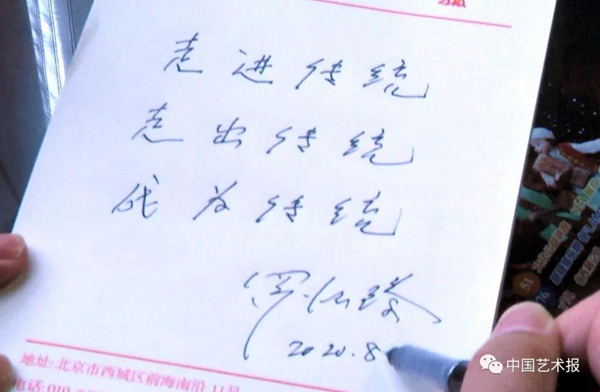 走进传统
走出传统
成为传统
罗怀臻
2020.8
地址:北京市西城区前海南沿11号
电话:010-6
中国艺术报